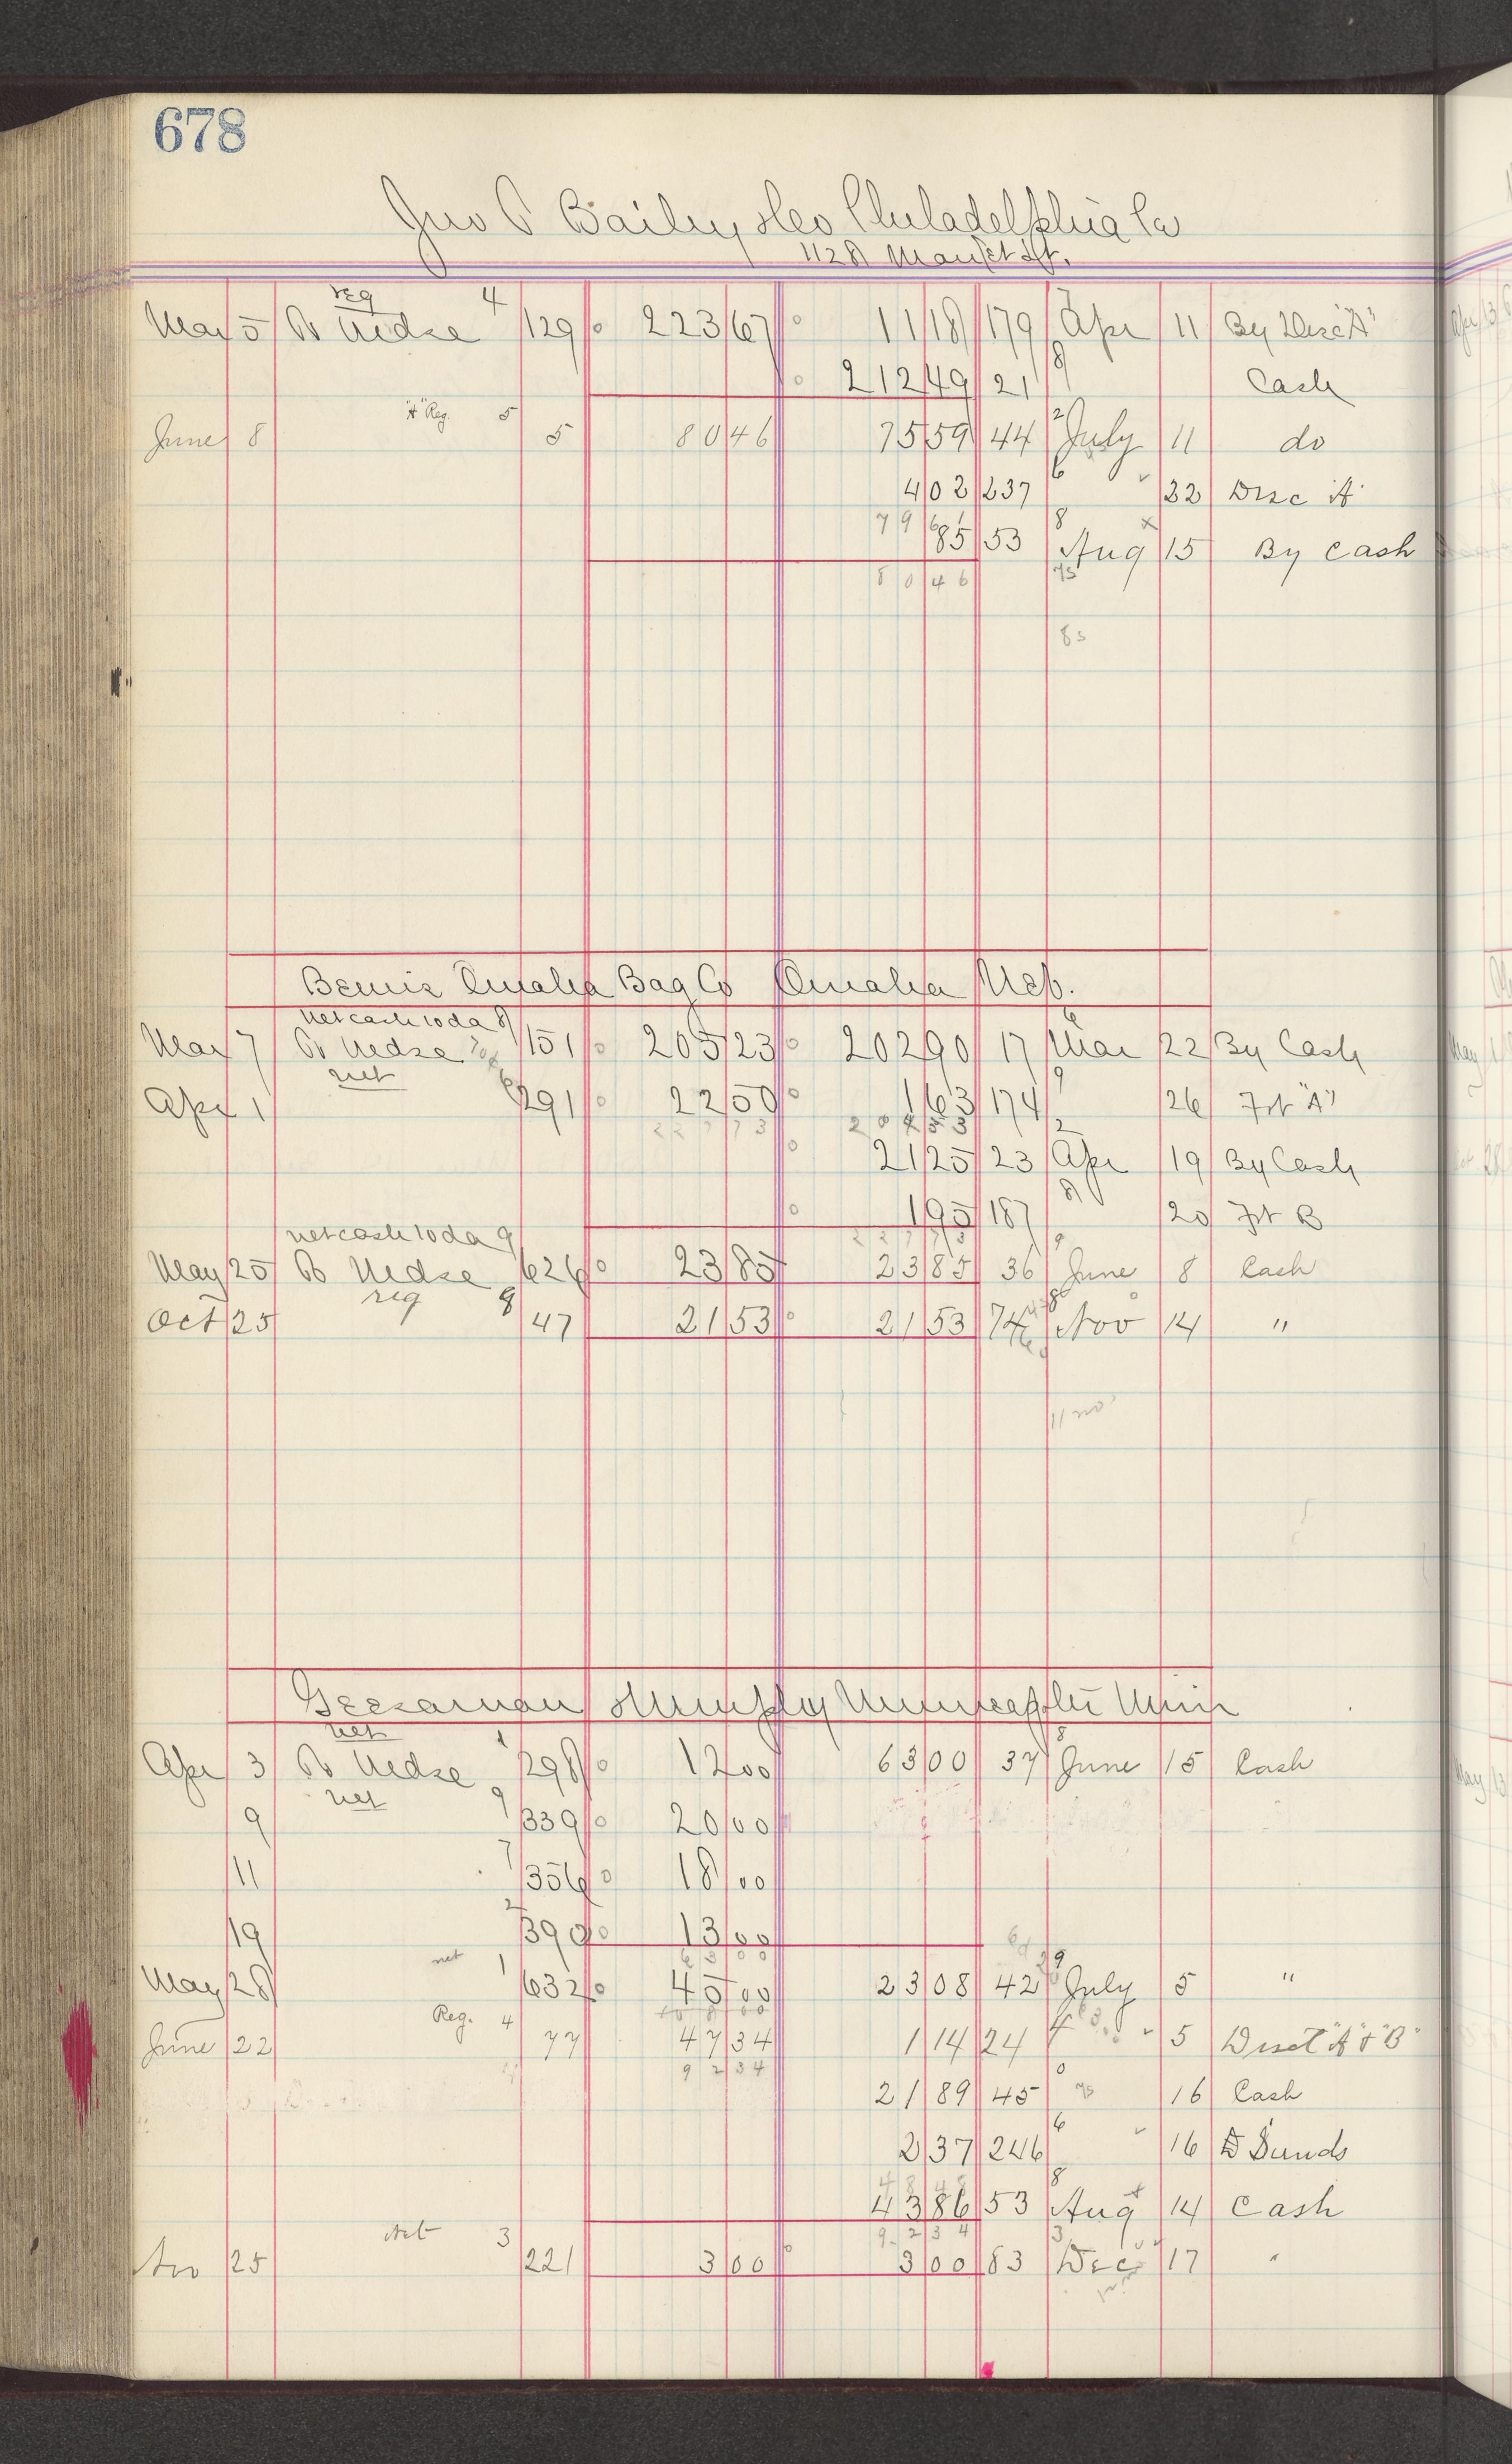 678
Jno P Bailey & Co Philadelphia Pa
1128 Market St.
reg 4
Mar 5 To Mdse 129 223 67 11 18 179 Apr 11 By Disc "A"
212 49 21 8 Cash
"A" Reg. 5 2
June 8 5 80 46 75 59 44 July 11 do
4 02 237 6 22 Disc "A"
79 61 8
85 53 Aug 15 By Cash
80 46
Bemis Omaha Bag Co Omaha Neb.
net cash 10 da 8 6
Mar 7 To Mdse 151 205 23 202 90 17 Mar 22 By Cash
net 6 9
Apr 1 291 22 50 1 63 174 26 Frt "A"
227 73 204 53 2
21 25 23 Apr 19 By Cash
1 95 187 8 20 Frt B
net cash 10 da 9 9
May 25 To Mdse 626 23 85 23 85 36 June 8 Cash
reg 9 8
Oct 25 47 21 53 21 53 74 Nov 14 "
11 no
Geesaman & Murphy Minneapolis Minn
net 1 8
Apr 3 To Mdse 298 12 00 63 00 37 June 15 Cash
net 9
9 339 20 00
7
11 356 18 00
2
19 390 13 00
net 1 63 00 9
May 28 632 45 00 23 08 42 July 5 "
Reg. 4
June 22 77 47 34 1 14 24 5 Disct "A" & "B"
92 34
21 89 45 16 Cash
2 37 246 6 16 Sunds
48 48 8
43 86 53 Aug 14 Cash
net 3 92 34 3
Nov 25 221 3 00 3 00 83 Dec 17 "